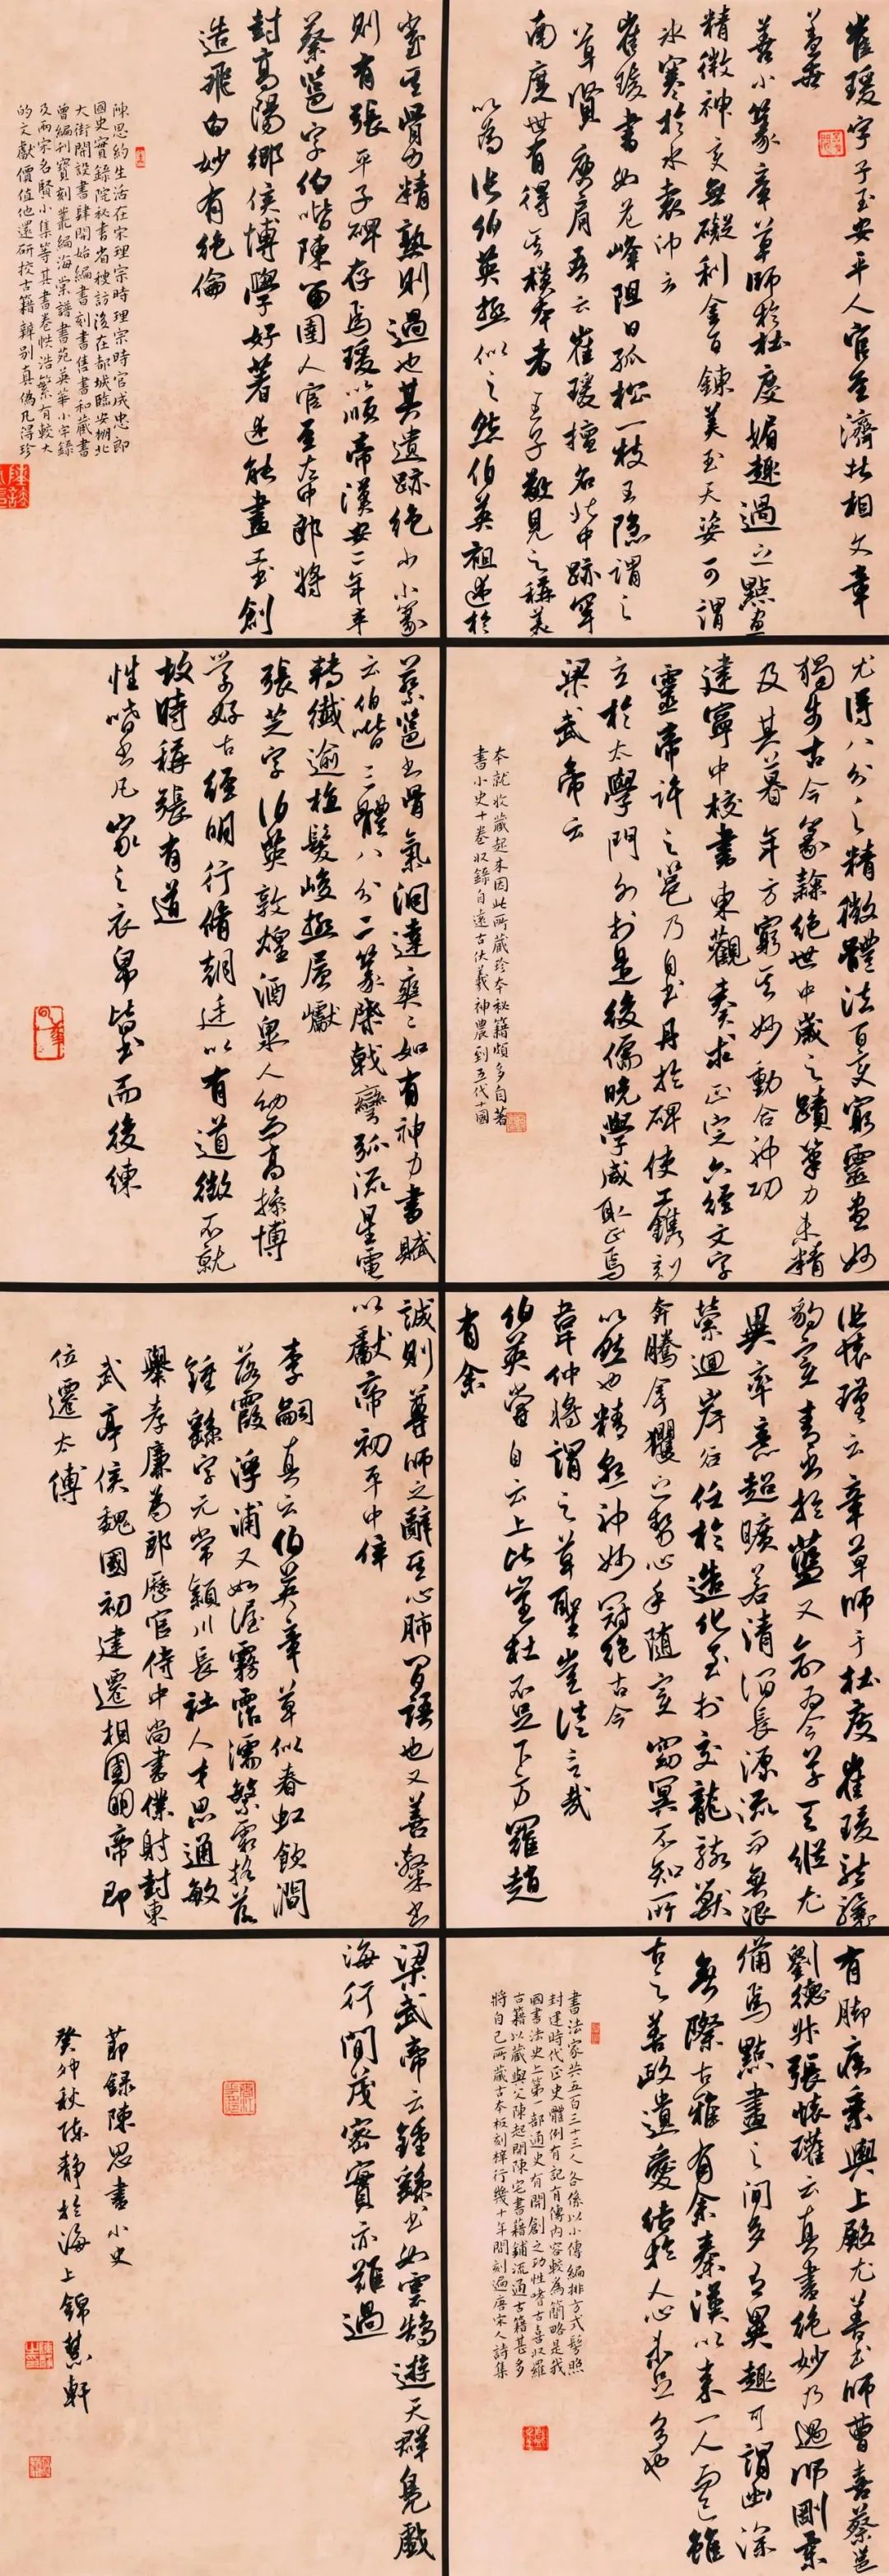 崔瑗字子玉安平人官至濟北相文章
蓋世
善小篆章草師於杜度媚趣過之點畫
精微神變無礙利金百鍊美玉天姿可謂
冰寒於水袁昂云
崔瑗書如危峰阻日孤松一枝王隱謂之
草賢庾肩吾云崔瑗擅名北中跡罕
南度世有得其模本者王子敬見之稱美
以為張伯英極似之然伯英祖述於
崔至骨力精熟則過也其遺跡絕少小篆
則有張平子碑存焉瑗以順帝漢安二年卒
蔡邕字伯喈陳留圉人官至左中郎將
封高陽鄉侯博學好著述能畫工書創
造飛白妙有絕倫
陳思約生活在宋理宗時理宗時官成忠郎
國史實錄院秘書省搜訪後在都城臨安棚北
大街開設書肆開始編書刻書售書和藏書
曾編刊寶刻叢編海棠譜書苑英華小字錄
及兩宋名賢小集等其書卷帙浩繁有較大
的文獻價值他還研校古籍辨別真偽凡得珍
尤得八分之精微體法百變窮靈盡妙
獨步古今篆隸絕世中歲之蹟筆力未精
及其暮年方窮其妙動合神功
建寧中校書東觀奏求正定六經文字
靈帝許之邕乃自書丹於碑使工鐫刻
立於太學門外於是後儒晚學咸取正焉
梁武帝云
本就收藏起來因此所藏珍本秘籍頗多自著
書小史十卷收錄自遠古伏羲神農到五代十國
蔡邕書骨氣洞達爽爽如有神力書賦
云伯喈三體八分二篆櫛戟彎弧流星電
轉纖逾植髮峻極層巘
張芝字伯英敦煌酒泉人幼而高操博
學好古經明行脩朝廷以有道徵不就
故時稱張有道
性嗜書凡家之衣帛皆書而後練
張懷瓘云章草師于杜度崔瑗龍驤
豹變青出於藍又創為今草天縱尤
異率意超曠若清澗長源流而無限
縈迴岸谷任於造化至於交龍駭獸
奔騰拏攫之勢心手隨變窈冥不知所
以然也精熟神妙冠絕古今
韋仲將謂之草聖豈徒言哉
伯英嘗自云上比崔杜不足下方羅趙
有余
誠則尊師之辭亦心肺間語也又善隸書
以獻帝初平中卒
李嗣真云伯英章草似春虹飲澗
落霞浮浦又如渥霧霑濡繁霜搖落
鍾繇字元常潁川長社人才思通敏
舉孝廉為郎歷官侍中尚書僕射封東
武亭侯魏國初建遷相國明帝即
位遷太傅
有腳疾乘輿上殿尤善書師曹喜蔡邕
劉德昇張懷瓘云真書絕妙乃過師剛柔
備焉點畫之間多有異趣可謂幽深
無際古雅有余秦漢以來一人而已雖
古之善政遺愛結於人心未足多也
書法家共五百三十三人各係以小傳編排方式髣照
封建時代正史體例有記有傳內容較為簡略是我
國書法史上第一部通史有開創之功性嗜古喜收羅
古籍以藏與父陳起開陳宅書籍鋪流通古籍甚多
將自己所藏古本板刻梓行幾十年間刻遍唐宋人詩集
梁武帝云鍾繇書如雲鵠遊天群鳧戲
海行間茂密實亦難過
節錄陳思書小史
癸卯秋陳靜於海上錦慧軒